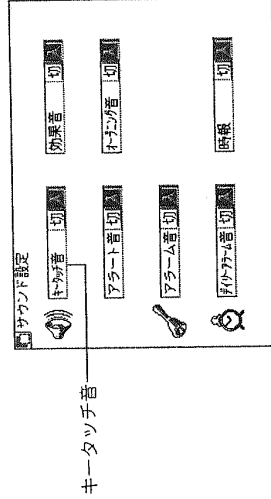 サウンド設定
キータッチ音 切 入
効果音 切 入
アラート音 切 入
オープニング音 切 入
アラーム音 切 入
デイリーアラーム音 切 入
時報 切 入
キータッチ音